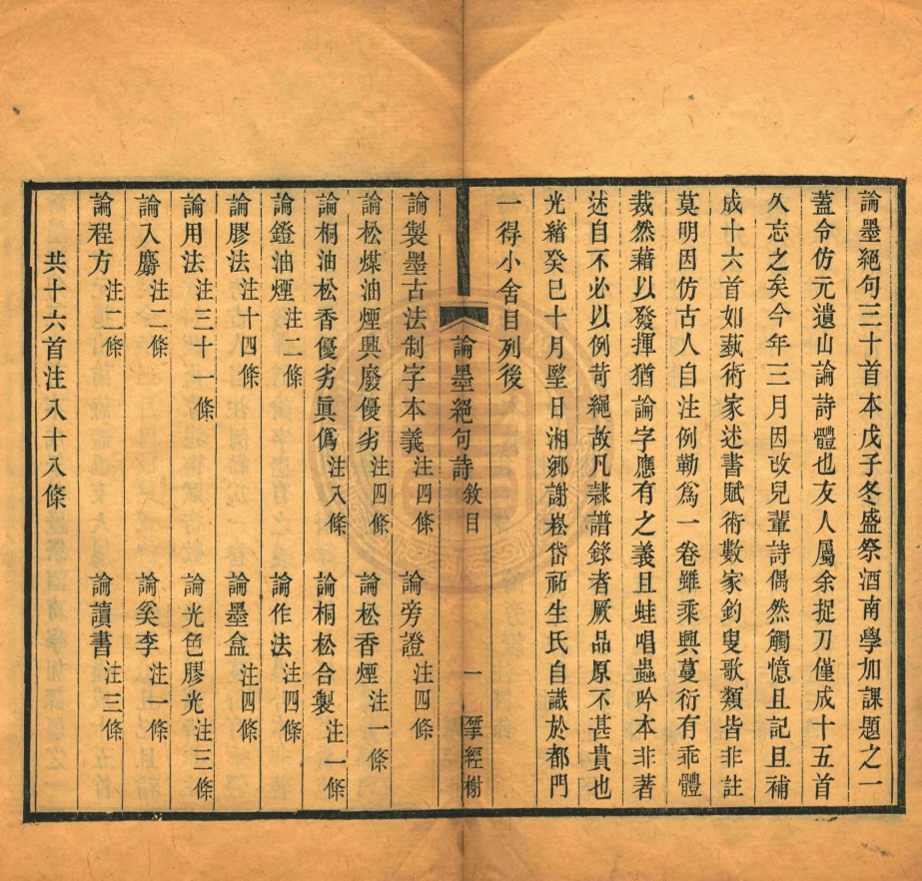 論墨絕句三十首本戊子冬盛祭酒南學加課題之一
蓋令仿元遺山論詩體也友人屬余捉刀僅成十五首
久忘之矣今年三月因改兒輩詩偶然觸憶且記且補
成十六首如藝術家述書賦術數家釣叟歌類皆非註
莫明因仿古人自注例勒爲一卷雖乘興蔓衍有乖體
裁然藉以發揮猶論字應有之義且蛙唱蟲吟本非著
述自不必以例苛繩故凡隷譜錄者厥品原不甚貴也
光緒癸巳十月朢日湘鄉謝崧岱祏生氏自識於都門
一得小舍目列後
論墨絕句詩 敘目 一 揅經榭
論製墨古法制字本義 注四條 論旁證 注四條
論松煤油煙興廢優劣 注四條 論松香煙 注一條
論桐油松香優劣眞僞 注八條 論桐松合製 注一條
論鐙油煙 注二條 論作法 注四條
論膠法 注十四條 論墨盒 注四條
論用法 注三十一條 論光色膠光 注三條
論入麝 注二條 論奚李 注一條
論程方 注二條 論讀書 注三條
共十六首注八十八條